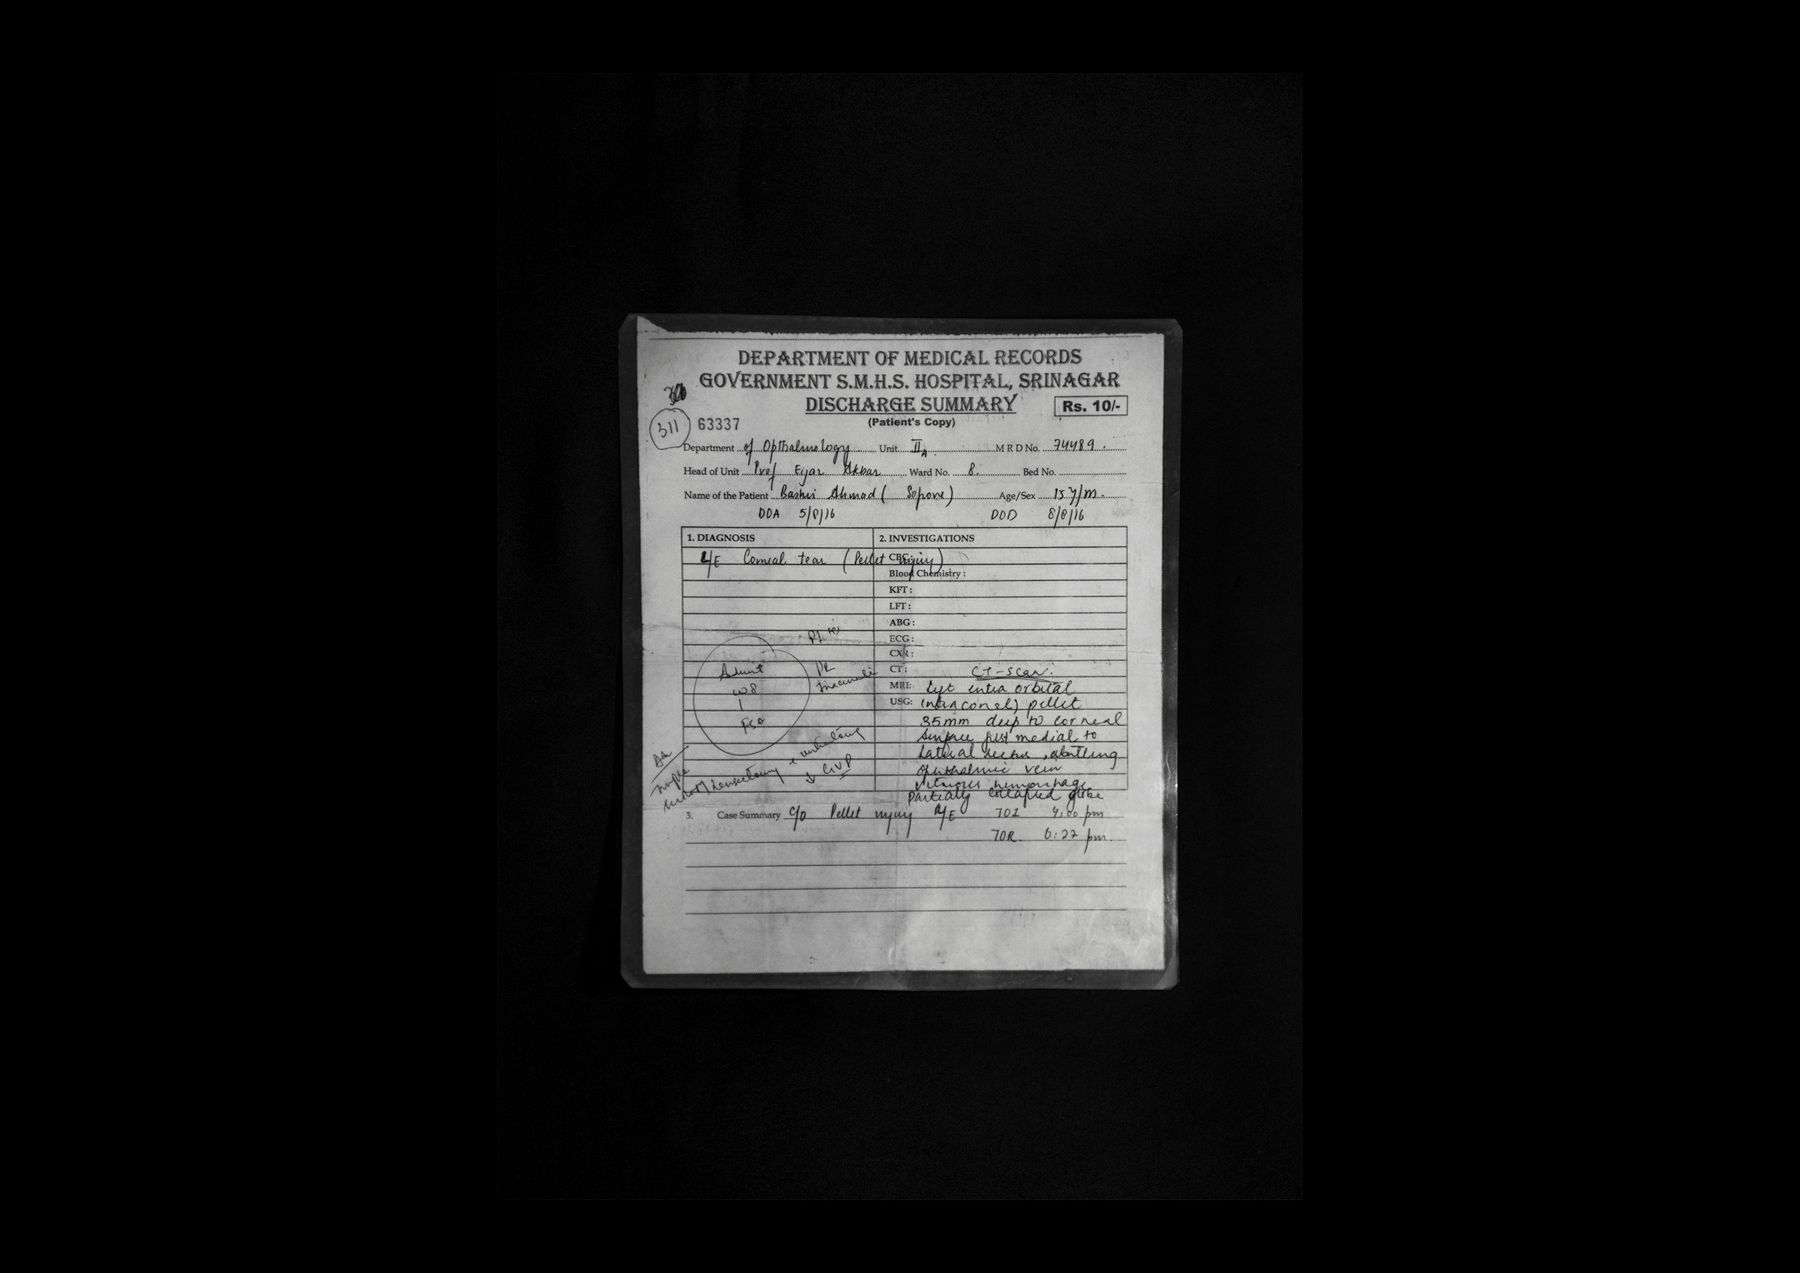 DEPARTMENT OF MEDICAL RECORDS
GOVERNMENT S.M.H.S. HOSPITAL, SRINAGAR
DISCHARGE SUMMARY
Rs. 10/-
(Patient's Copy)
311
63337
Department of Opthalmology Unit II A M R D No. 74489
Head of Unit Prof Ejaz Akbar Ward No. 8 Bed No.
Name of the Patient Bashir Ahmad (Sopore) Age/Sex 15 y/m
DOA 5/8/16 DOD 8/8/16
1. DIAGNOSIS
2. INVESTIGATIONS
L/E Corneal tear (Pellet injury)
CBC:
Blood Chemistry :
KFT :
LFT :
ABG :
ECG :
CXR :
CT : CT-Scan
MRI: intra orbital
USG: (intraconal) pellet
35mm deep to corneal
surface just medial to
lateral rectus, abutting
ophthalmic vein
vitreous hemorrhage
Partially collapsed globe
Admit
W8
3. Case Summary c/o Pellet injury 4:00 pm
6:22 pm